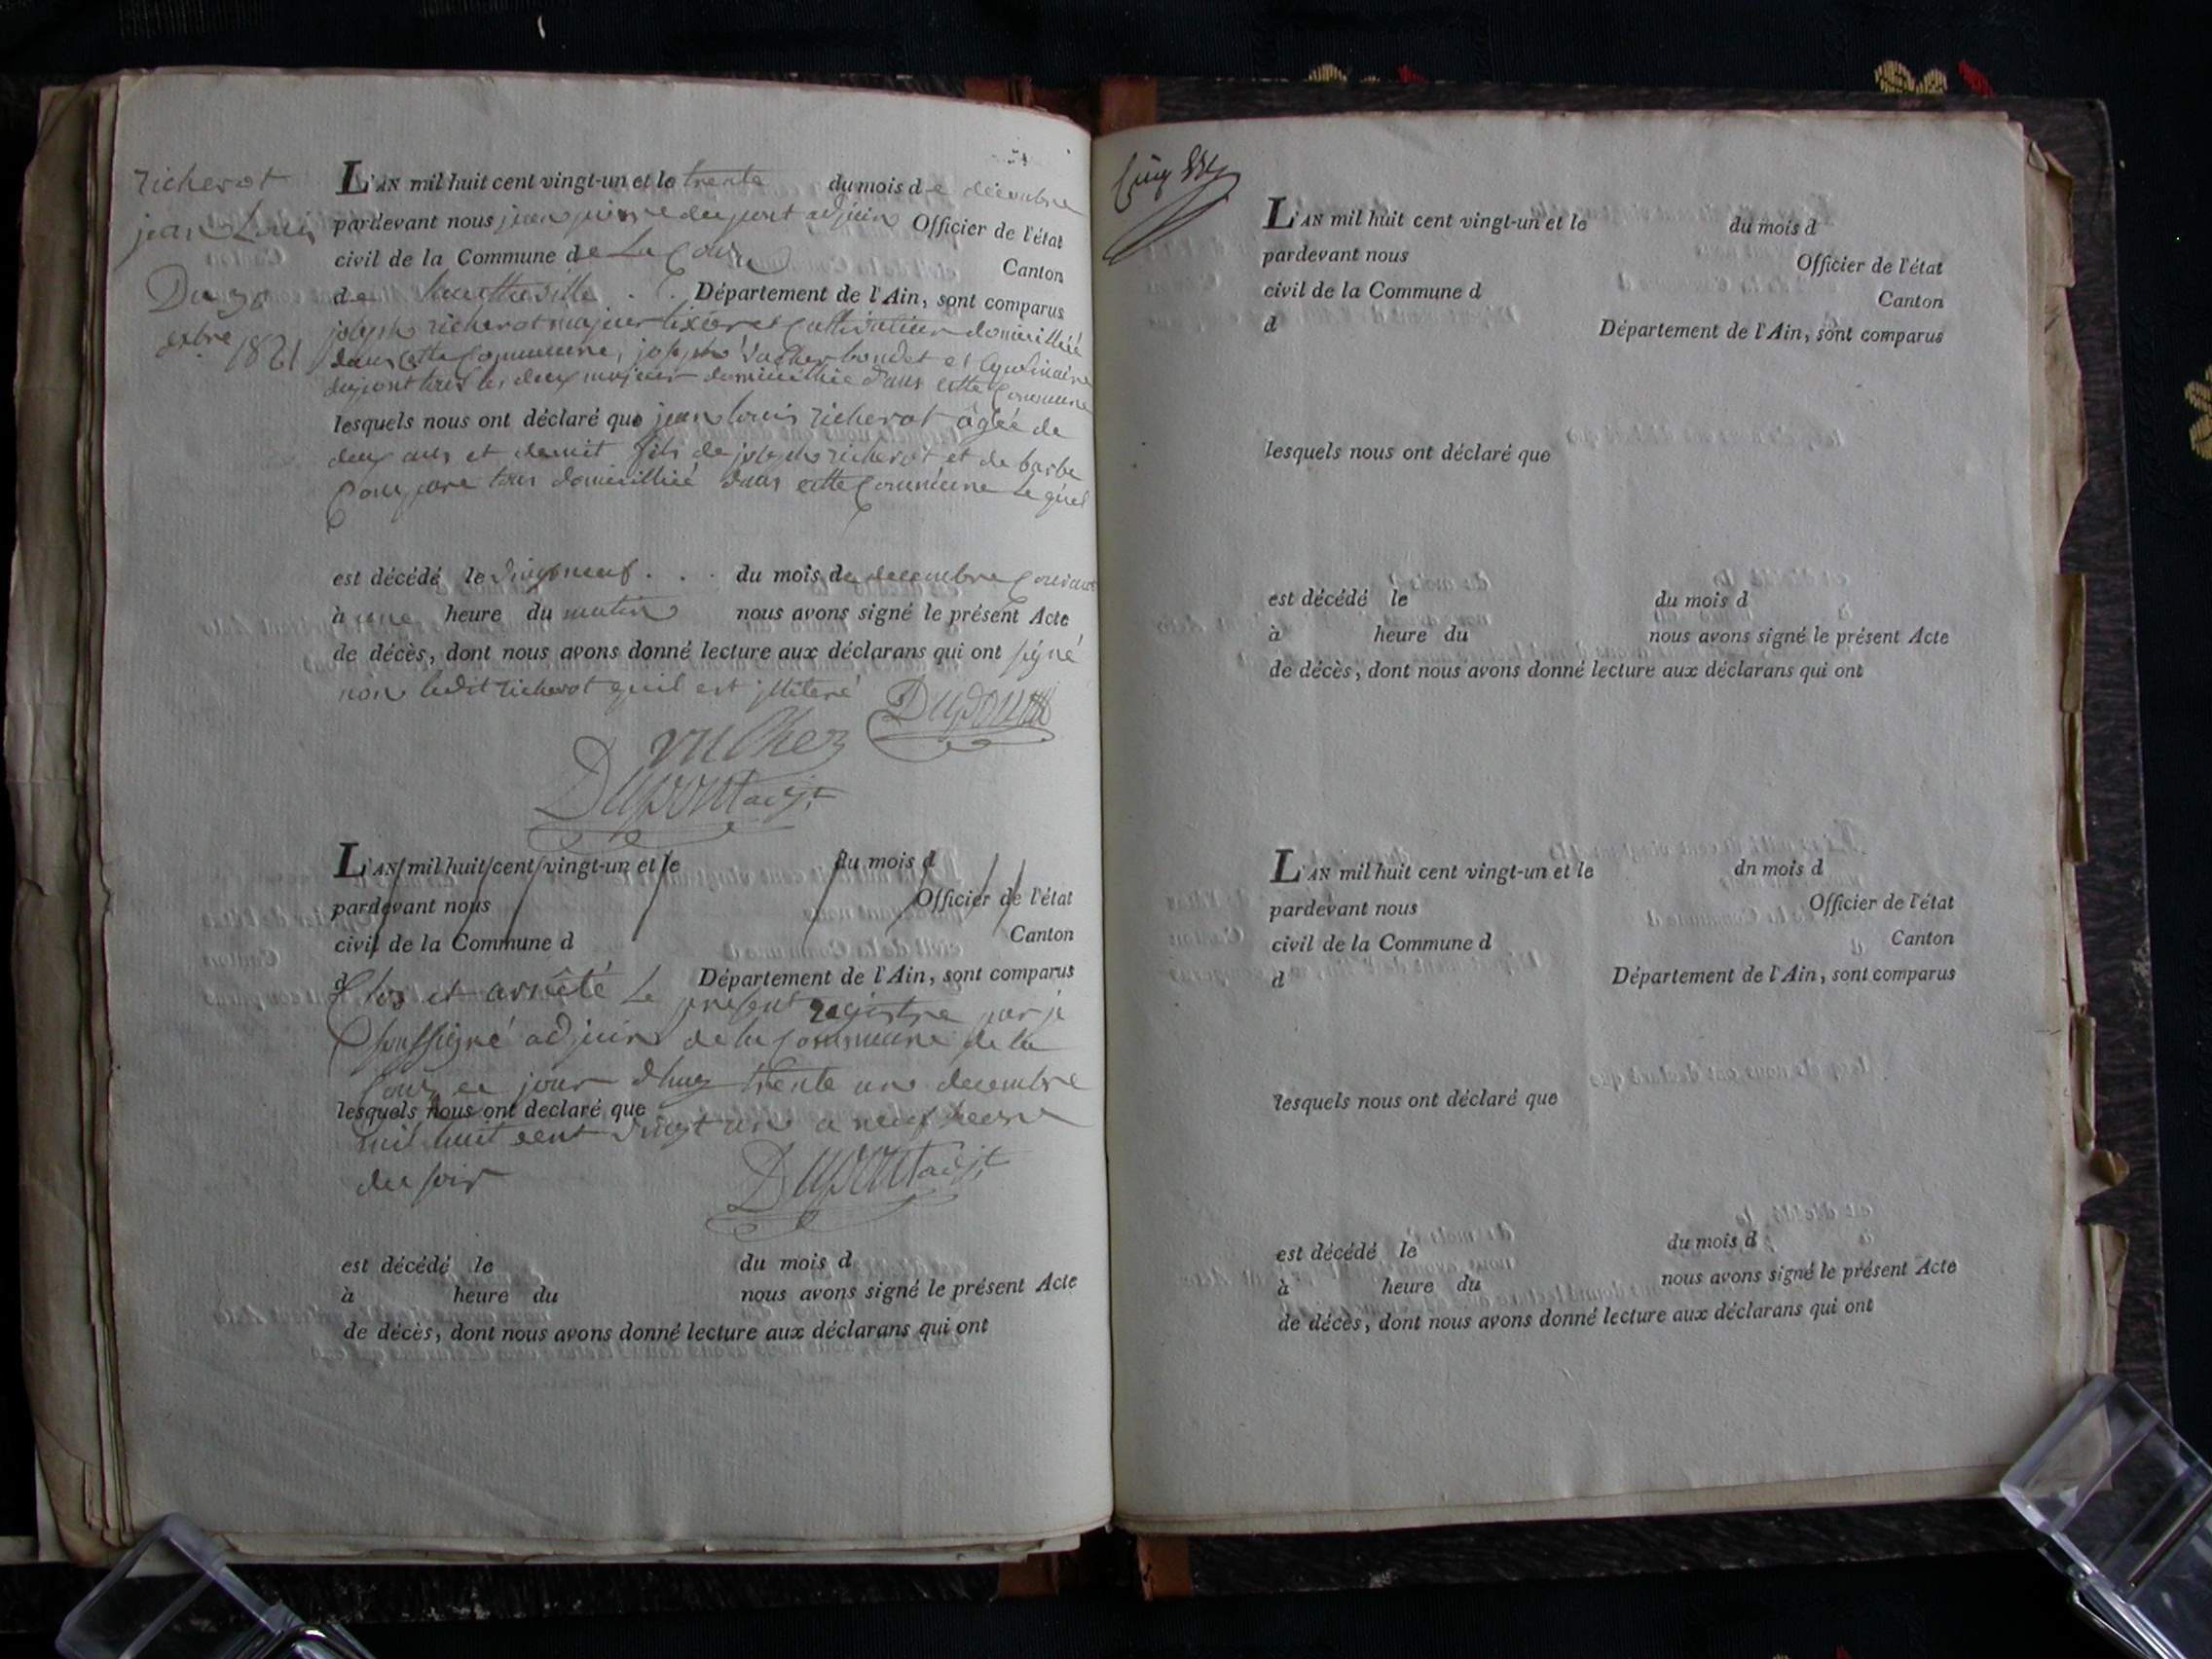 richerot
jean Louis
Du 30
xbre 1821
L'AN mil huit cent vingt-un et le trente du mois de décembre
pardevant nous jean pierre dupont adjoin Officier de l'état
civil de la Commune de La Coux Canton
de hautheville Département de l'Ain, sont comparus
joseph richerot majeur cultivateur domicillié
dans cette Commune, joseph Vucher et Apolinaire
dupont tous les deux majeur domicillié dans cette Commune
lesquels nous ont déclaré que jean louis richerot âgée de
deux ans et demit fils de joseph richerot et de barbe
tous domicillié dans cette Commune Lequel
est décédé le vingt neuf . . . du mois de decembre Courant
à une heure du matin nous avons signé le présent Acte
de décès, dont nous avons donné lecture aux déclarans qui ont signé
non ledit richerot quil est illiteré Dupont
vucher
Dupont adjt
L'AN mil huit cent vingt-un et le du mois d
pardevant nous Officier de l'état
civil de la Commune d Canton
d Département de l'Ain, sont comparus
Clos et arrêté Le present registre par je
soussigné adjoin de la Commune de la
Coux ce jour dhuy trente un decembre
lesquels nous ont declaré que
mil huit cent vingt un a neuf heure
du soir Dupont adjt
est décédé le du mois d
à heure du nous avons signé le présent Acte
de décès, dont nous avons donné lecture aux déclarans qui ont
L'AN mil huit cent vingt-un et le du mois d
pardevant nous Officier de l'état
civil de la Commune d Canton
d Département de l'Ain, sont comparus
lesquels nous ont déclaré que
est décédé le du mois d
à heure du nous avons signé le présent Acte
de décès, dont nous avons donné lecture aux déclarans qui ont
L'AN mil huit cent vingt-un et le dn mois d
pardevant nous Officier de l'état
civil de la Commune d Canton
d Département de l'Ain, sont comparus
lesquels nous ont déclaré que
est décédé le du mois d
à heure du nous avons signé le présent Acte
de décès, dont nous avons donné lecture aux déclarans qui ont